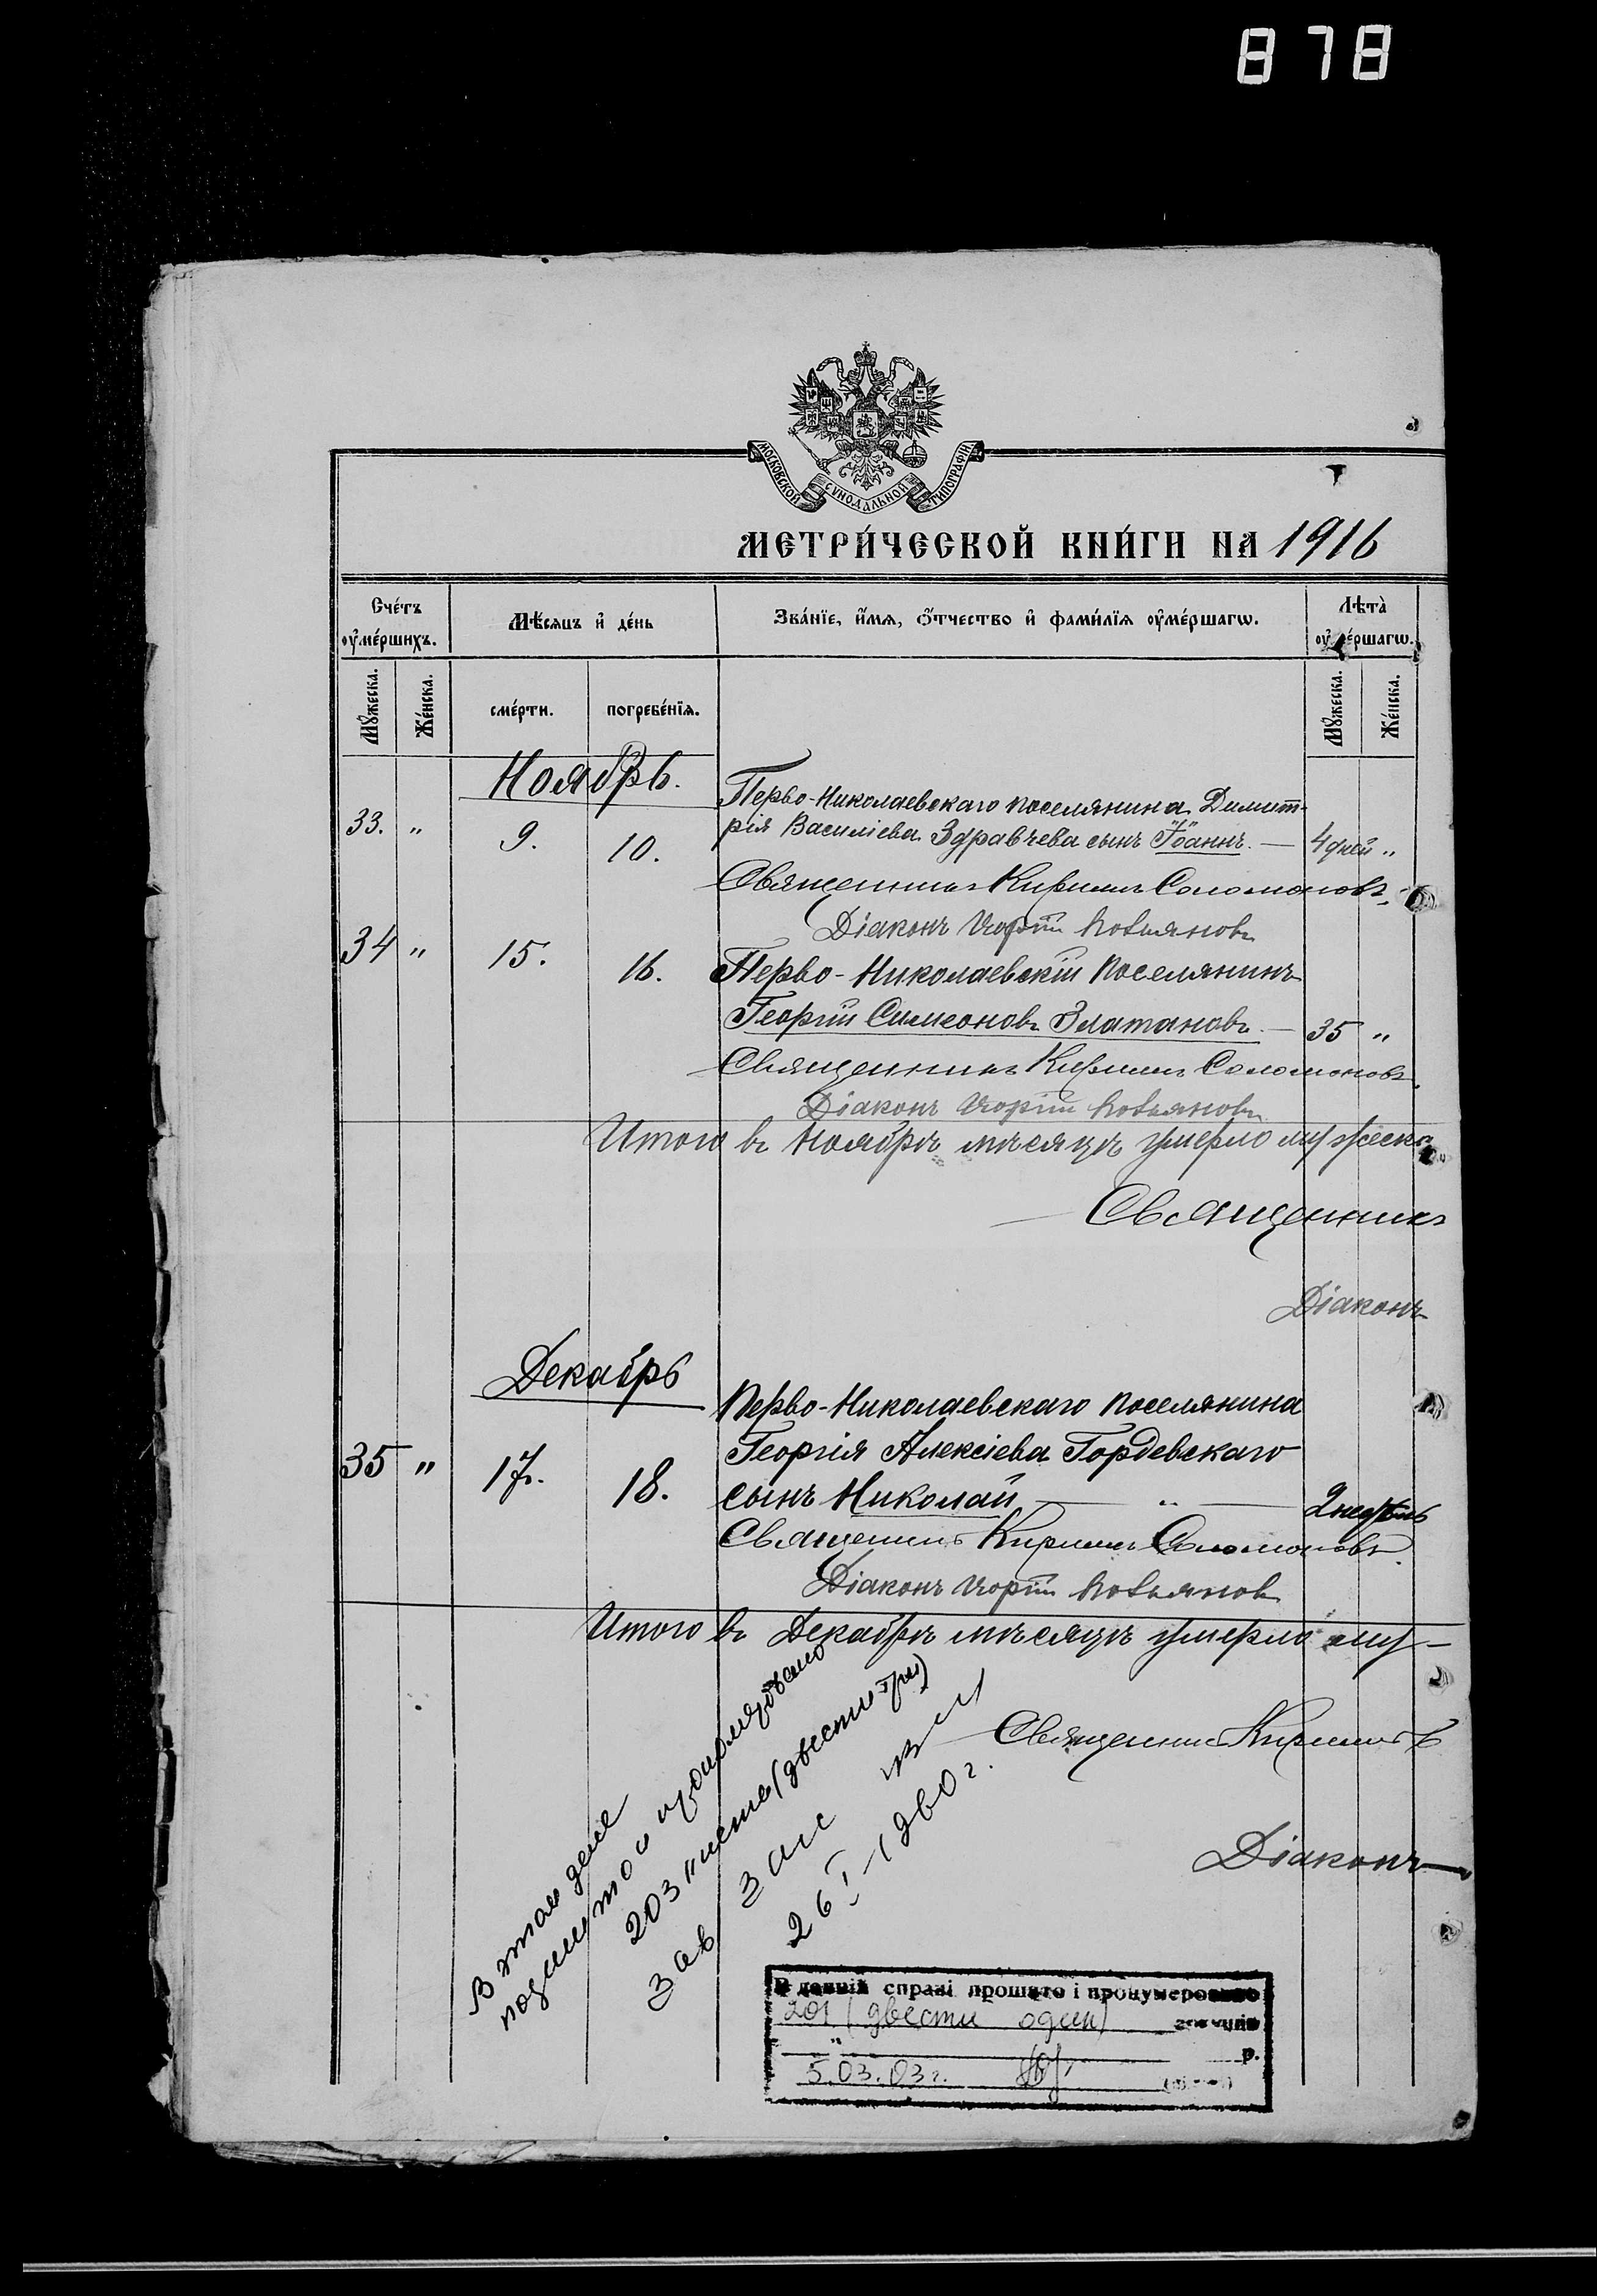 878
МОСКОВСКОЙ СѴНОДАЛЬНОЙ ТИПОГРАФІИ
МЕТРИ́ЧЕСКОЙ КНИ́ГИ НА 1916
Сче́тъ ᲂу҆ме́ршихъ.
Мѣ́сѧцъ и҆ де́нь
Зва́нїе, и҆́мѧ, ѻ҆́тчество и҆ фами́лїѧ ᲂу҆ме́ршагѡ.
Лѣта̀ ᲂу҆ме́ршагѡ.
Мꙋ́жеска.
Же́нска.
сме́рти.
погребе́нїѧ.
Мꙋ́жеска.
Же́нска.
Ноябрь.
Перво-Николаевскаго поселянина Димит-
33. " 9. 10. рія Василіева Здравчева сынъ "Іоаннъ". — 4 дней "
Священникъ Кириллъ Соломоновъ.
Діаконъ
34 " 15. 16. Перво-Николаевскій поселянинъ
Георгій Симеоновъ Златановъ. — 35 "
Священникъ Кириллъ Соломоновъ.
Діаконъ
Итого въ Ноябрѣ мѣсяцѣ умерло мужеска
Священникъ
Діаконъ
Декабрь
Перво-Николаевскаго поселянина
35 " 17. 18. Георгія Алексіева Гордевскаго
сынъ Николай — " — 2 недѣль
Священникъ Кириллъ Соломоновъ.
Діаконъ
Итого въ Декабрѣ мѣсяцѣ умерло му-
Священникъ Кириллъ
Діаконъ
В этом деле
подшито и пронумеровано
203 листа (двести три)
Зав загс
26/I-1960 г.
В данній справі прошито і пронумеровано
201 (двести один)
" р.
5.03.03 г.